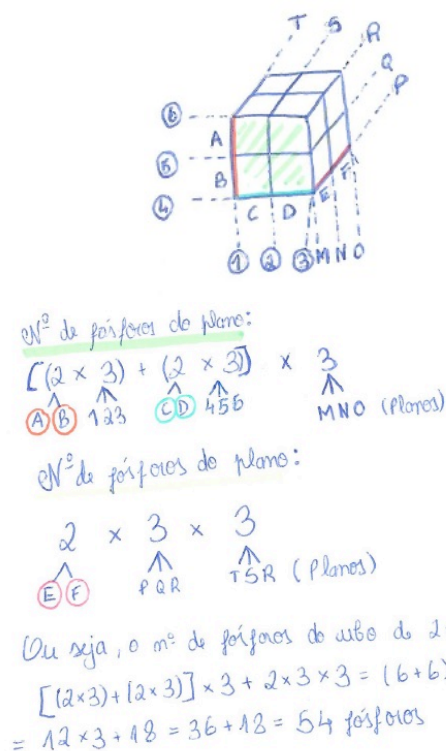 T S R
Q
P
6
A
5
B
4
C D E F
1 2 3 M N O
Nº de fósforos do plano:
[(2 × 3) + (2 × 3)] × 3
A B 123 C D 456 MNO (Planos)
Nº de fósforos do plano:
2 × 3 × 3
E F PQR TSR (Planos)
Ou seja, o nº de fósforos do cubo de 2
[(2×3)+(2×3)] × 3 + 2×3×3 = (6+6)
= 12×3+18 = 36+18 = 54 fósforos